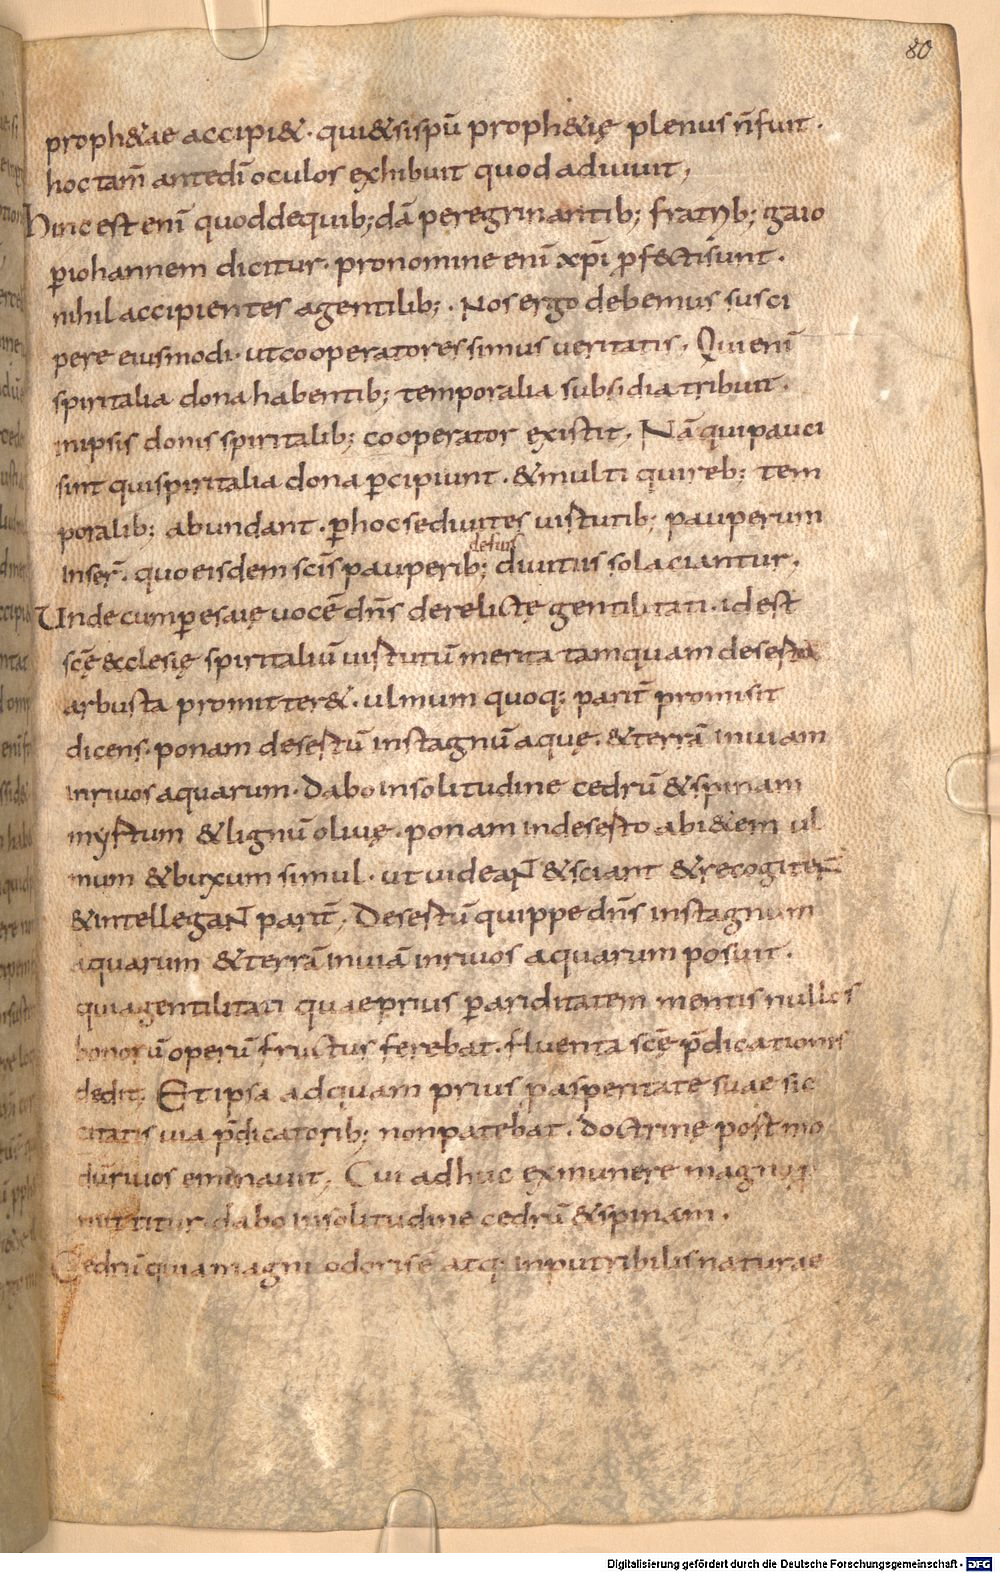 80
proph&ae accipi&· qui&sispū proph&ię plenus n̄fuit·
hoc tam̄ antedī oculos exhibuit quod adiuuit,
Hinc est enī quoddequib; dā peregrinantib; fratrib; gaio
ꝑiohannem dicitur· pronomine enī xp̄i ꝓfectisunt·
nihil accipientes agentilib;· Nos ergo debemus susci
pere eiusmodi· utcooperatores simus ueritatis, Qui enī
spiritalia dona habentib; temporalia subsidia tribuit·
inipsis donis spiritalib; cooperator existit, Nā quipauci
sint quispiritalia dona ꝑcipiunt· &multi quireb; tem
poralib; abundant· ꝑhocsediuites uirtutib; pauperum
inser̄· quo eisdem scīs pauperib; diuitiis solaciantur,
de suis
Unde cumꝑesaię uocē dn̄s derelictę gentilitati· idest
scę̄ &cclesię spiritaliū uirtutū merita tamquam deserta
arbusta promitter&· ulmum quoq; parit̄ promisit
dicens· ponam desertū instagnū aquę· &terrā inuiam
inriuos aquarum· Dabo insolitudine cedrū &spinam
myrtum &lignū oliuę· ponam indeserto abi&em ul
mum &buxum simul· ut uideaNT̄ &sciant &recogiteNT̄
&intellegaNT̄ parit̄, Desertū quippe dn̄s instagnum
aquarum &terrā inuiā inriuos aquarum posuit·
quiagentilitati quae prius ꝑariditatem mentis nullos
bonorū operū fructus ferebat· fluenta scę̄ p̄dicationis
dedit, Et ipsa adquam prius ꝓasperitate suae sic
citatis uia p̄dicatorib; nonpatebat· doctrinę postmo
dū riuos emanauit, Cui adhuc exmunere magno ꝓ
mittitur· dabo insolitudine cedrū &spinam·
Cedrū quiamagni odoris ē atq; inputribilis naturae
Digitalisierung gefördert durch die Deutsche Forschungsgemeinschaft - DFG